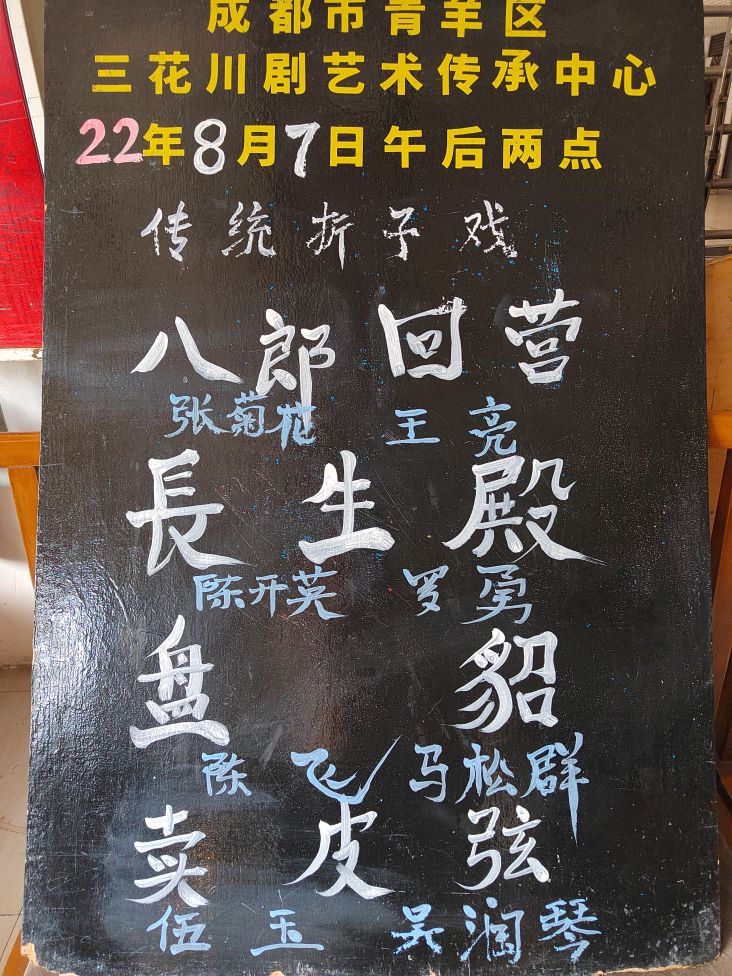 成都市青羊区
三花川剧艺术传承中心
22年8月7日午后两点
传统折子戏
八郎回营
张菊花 王亮
長生殿
陈开英 罗勇
盘貂
陈飞 马松群
卖皮弦
伍玉 吴润琴